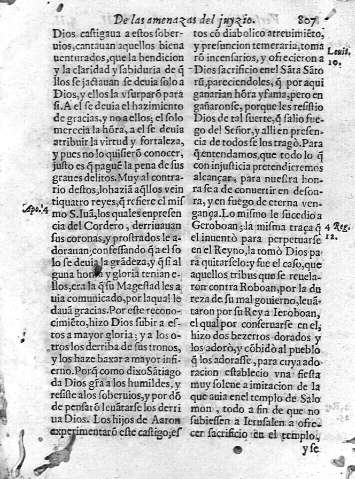 De las amenazas del juyzio. 807
Dios castigaua a estos sober-
uios, cantauan aquellos biena
uenturados, que la bendicion
y la claridad y sabiduria de q̃
llos se jactauan se deuia a solo
Dios, y ellos la vsurparõ para
si. A el se deuia el hazimiento
de gracias, y no a ellos; el solo
merecia la hõra, a el se deuia
atribuir la virtud y fortaleza,
y pues no lo quisierõ conocer,
justo es q̃ paguẽ la pena de sus
graues delitos. Muy al contra-
rio destos, lo haziã aq̃llos vein
tiquatro reyes, q̃ refiere el mis
mo S. Iuã, los quales en presen
cia del Cordero, derriuauan
sus coronas, y prostrados le a-
dorauan; confessando q̃ a el so
lo se deuia la grãdeza, y q̃ si al
guna honra y gloria tenian e-
llos, era la q̃ su Magestad les a
uia comunicado, por lo qual le
dauã gracias. Por este recono-
cimiẽto, hizo Dios subir a es-
tos a mayor gloria: y a los o-
tros los derriba de sus tronos,
y los haze baxar a mayor infi-
erno. Porq̃ como dixo Sãtiago
da Dios gr̃a a los humildes, y
resiste a los soberuios, y por dõ
de pensarõ leuãtarse los derri
ua Dios. Los hijos de Aaron
experimentarõ este castigo, es
Apo. 4
tos cõ diabolico atreuimiẽto,
y presuncion temeraria, toma
rõ incensarios, y ofrecieron a
Dios sacrificio en el Sãta Sãto
rũ, pareciendoles, q̃ por aqui
ganarian hõra y fama, pero en
gañaronse, porque les resistio
Dios de tal suerte, q̃ salio fue-
go del Señor, y alli en presen-
cia de todos se los tragò. Para
q̃ entendamos, que todo lo q̃
con injusticia pretendieremos
alcançar, para nuestra honra
se a de conuertir en deshon-
ra, y en fuego de eterna ven-
gança. Lo mismo le sucedio a
Geroboan; la misma traça q̃
el inuentò para perpetuarse
en el Reyno, la tomò Dios pa
ra quitarselo; y fue el caso, que
aquellos tribus que se reuela-
ron contra Roboan, por la du
reza de su mal gouierno, leuã-
taron por su Rey a Ieroboan,
el qual por conseruarse en el,
hizo dos bezerros dorados y
los adorò, y cõbidò al pueblo
q̃ los adorasse, para cuya ado-
racion establecio vna fiesta
muy solene a imitacion de la
que auia en el templo de Salo
mon, todo a fin de que no
subiessen a Ierusalen a ofre-
cer sacrificio en el templo,
y se
Leuit.
10.
4 Reg.
12.